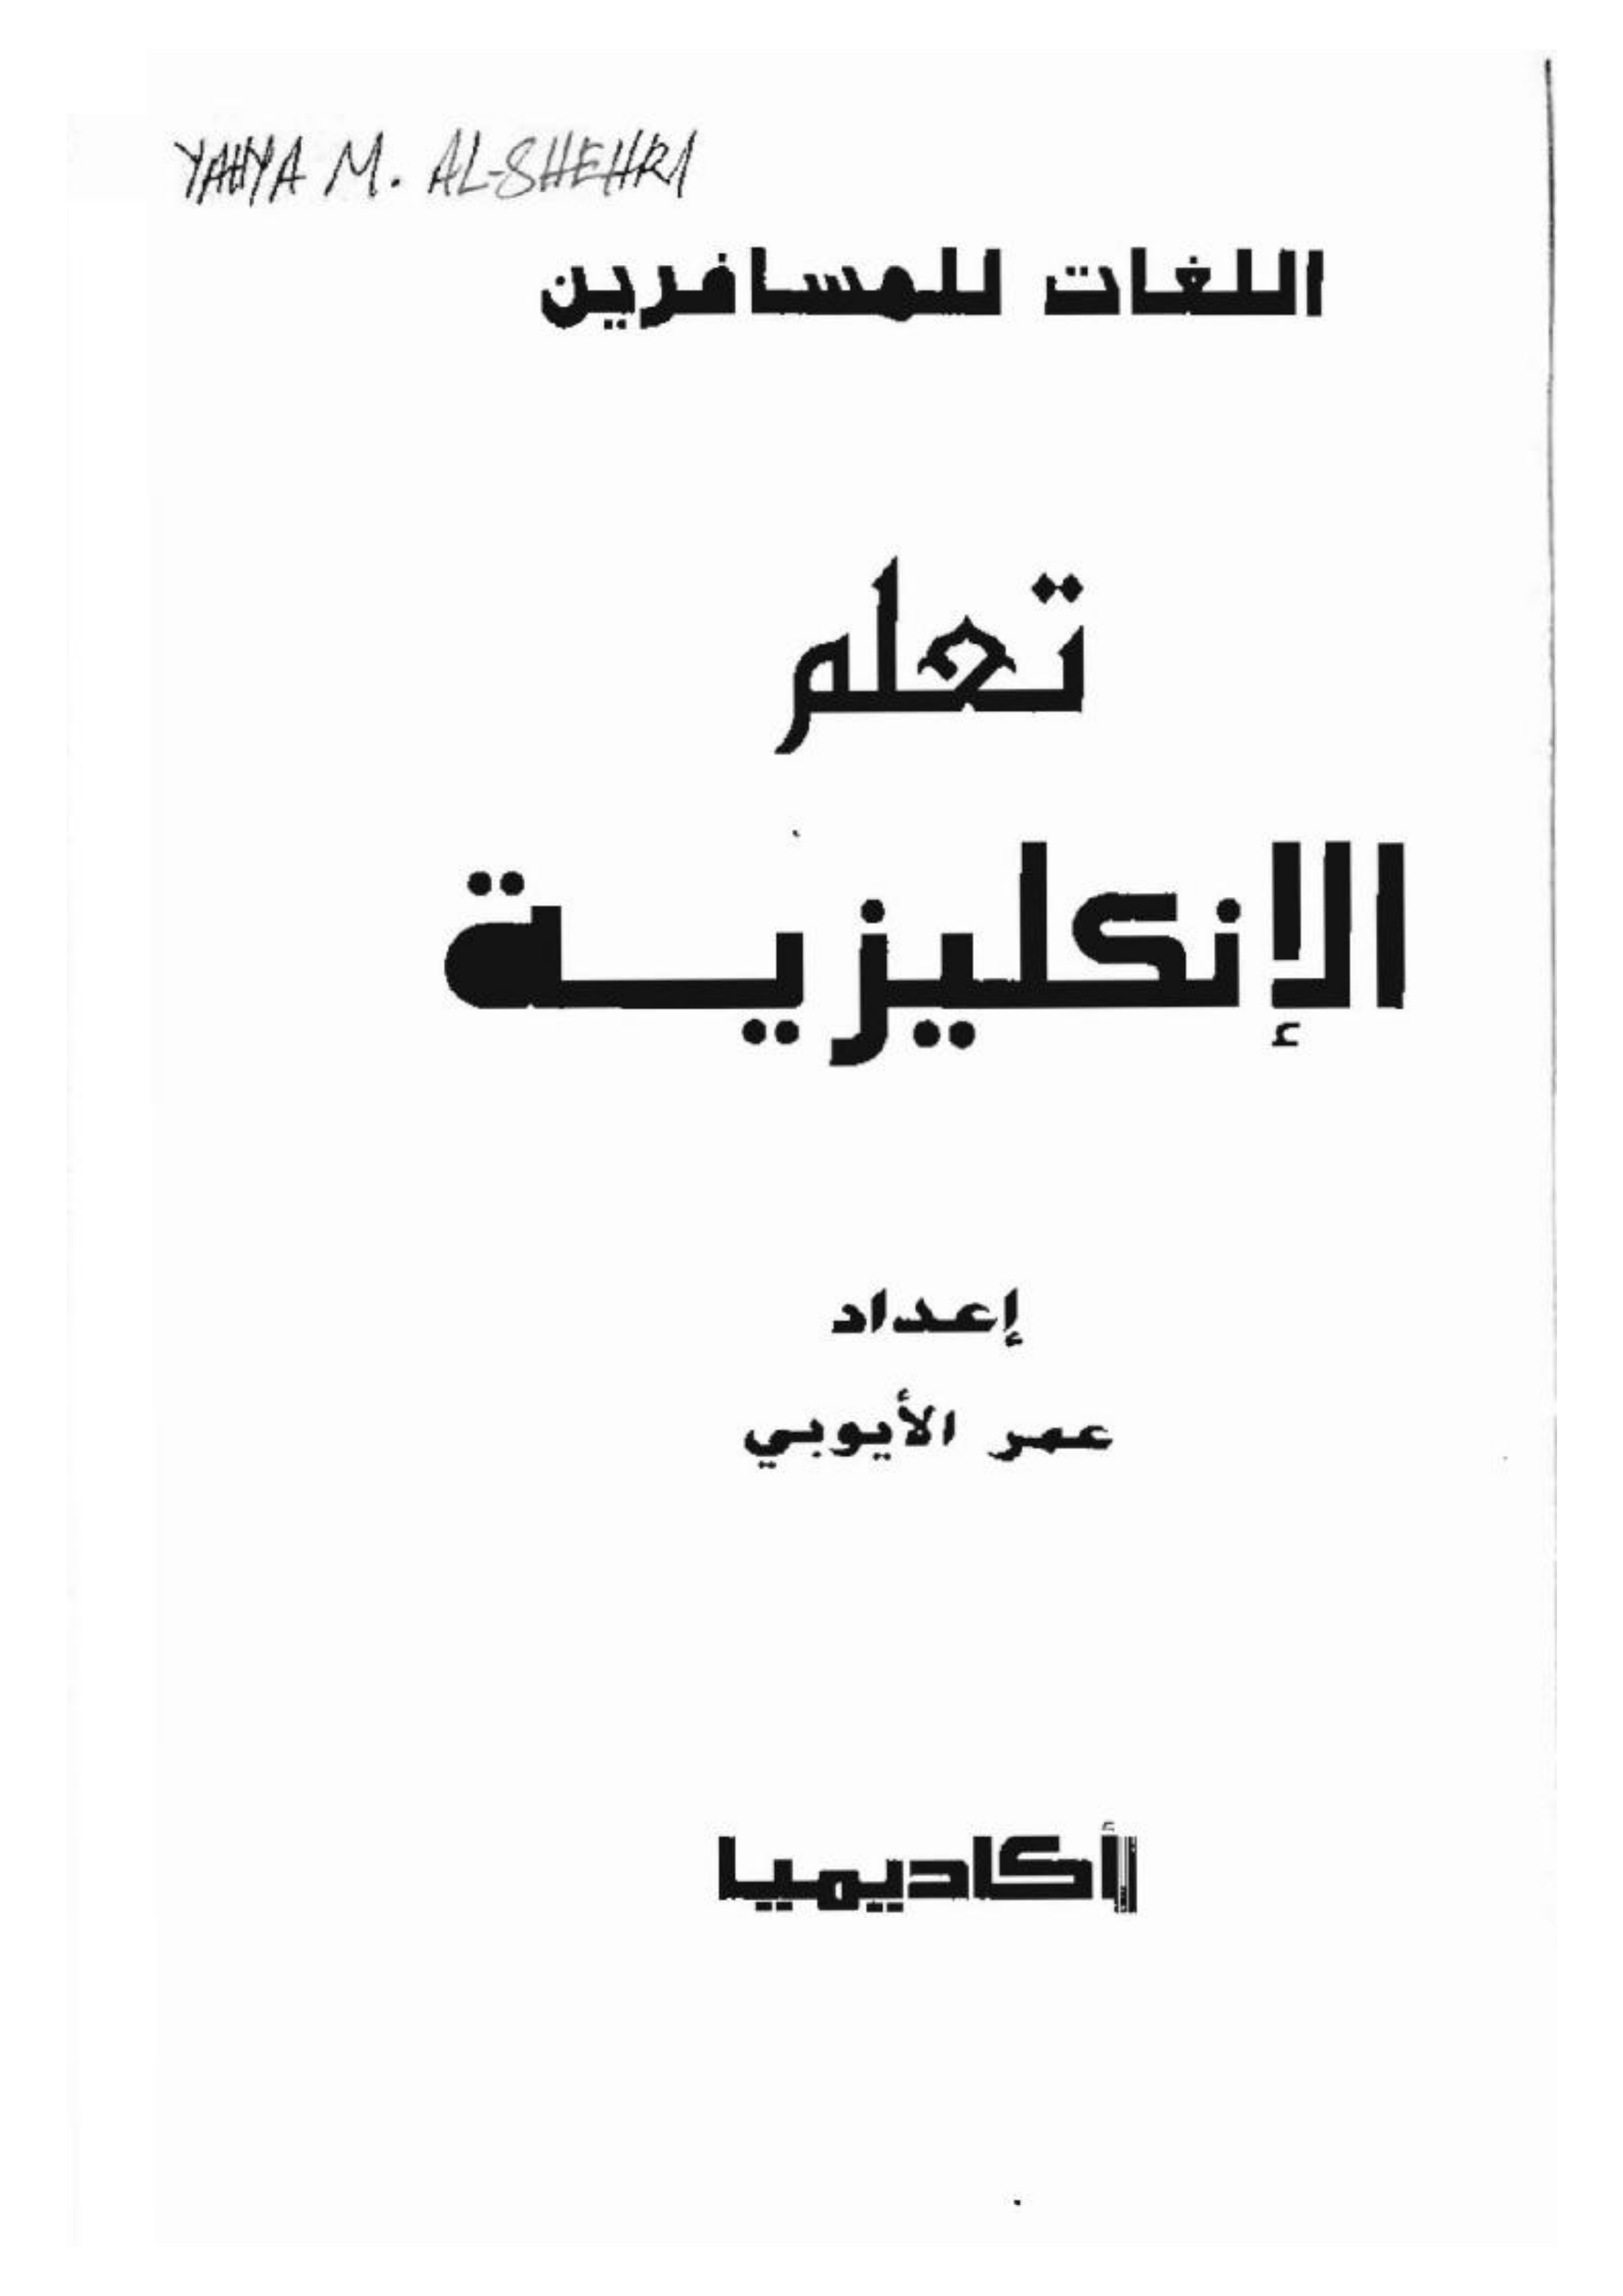 YAHYA M. AL-SHEHRI
اللغات للمسافرين
تعلم
الإنكليزية
إعداد
عمر الأيوبي
أكاديميا